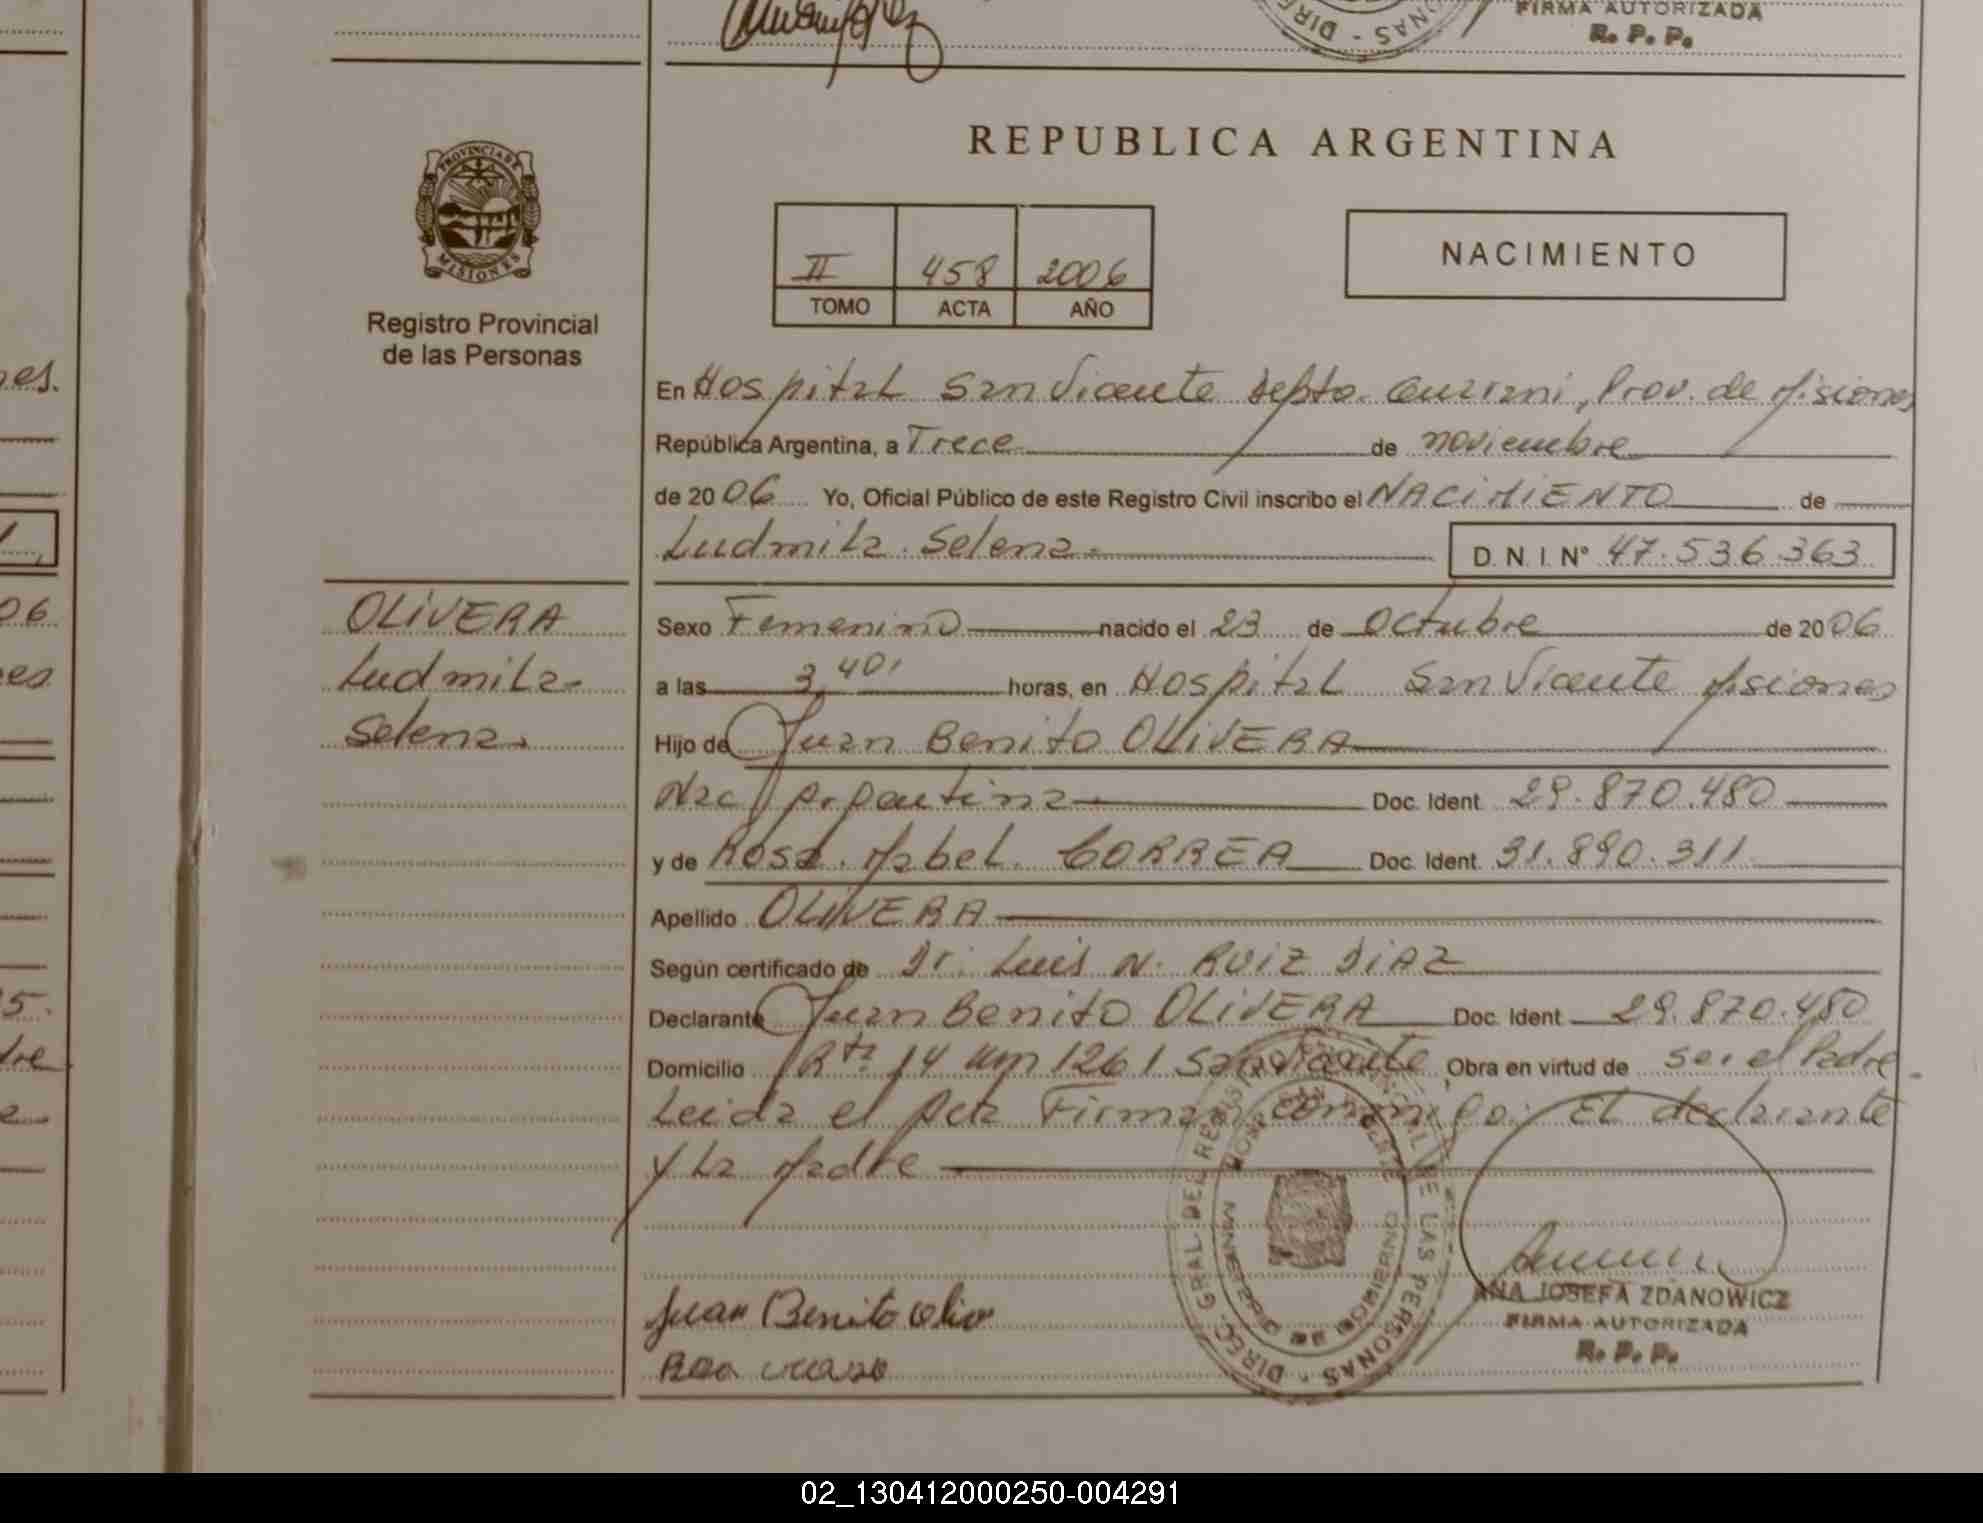 FIRMA AUTORIZADA
R. P. P.
REPUBLICA ARGENTINA
PROVINCIA DE MISIONES
Registro Provincial
de las Personas
II 458 2006
TOMO ACTA AÑO
NACIMIENTO
En Hospital San Vicente Depto. Guarani, Prov. de Misiones
República Argentina, a Trece de noviembre
de 2006 Yo, Oficial Público de este Registro Civil inscribo el NACIMIENTO de
Ludmila Selena D. N. I. N° 47.536.363
OLIVERA
Ludmila
Selena
Sexo Femenino nacido el 23 de Octubre de 2006
a las 3,40' horas, en Hospital San Vicente Misiones
Hijo de Juan Benito OLIVERA
Nac/ Argentina Doc. Ident. 29.870.480
y de Rosa Mabel CORREA Doc. Ident. 31.890.311
Apellido OLIVERA
Según certificado de Dr. Luis N. RUIZ DIAZ
Declarante Juan Benito OLIVERA Doc. Ident 29.870.480
Domicilio Rta 14 Km 1261 San Vicente, Obra en virtud de ser el Padre
Leida el Acta Firman conmigo: El declarante
y La Madre
Juan Benito
DIREC. GRAL. DEL REGISTRO PROVINCIAL DE LAS PERSONAS
ANA JOSEFA ZDANOWICZ
FIRMA AUTORIZADA
R. P. P.
02_130412000250-004291